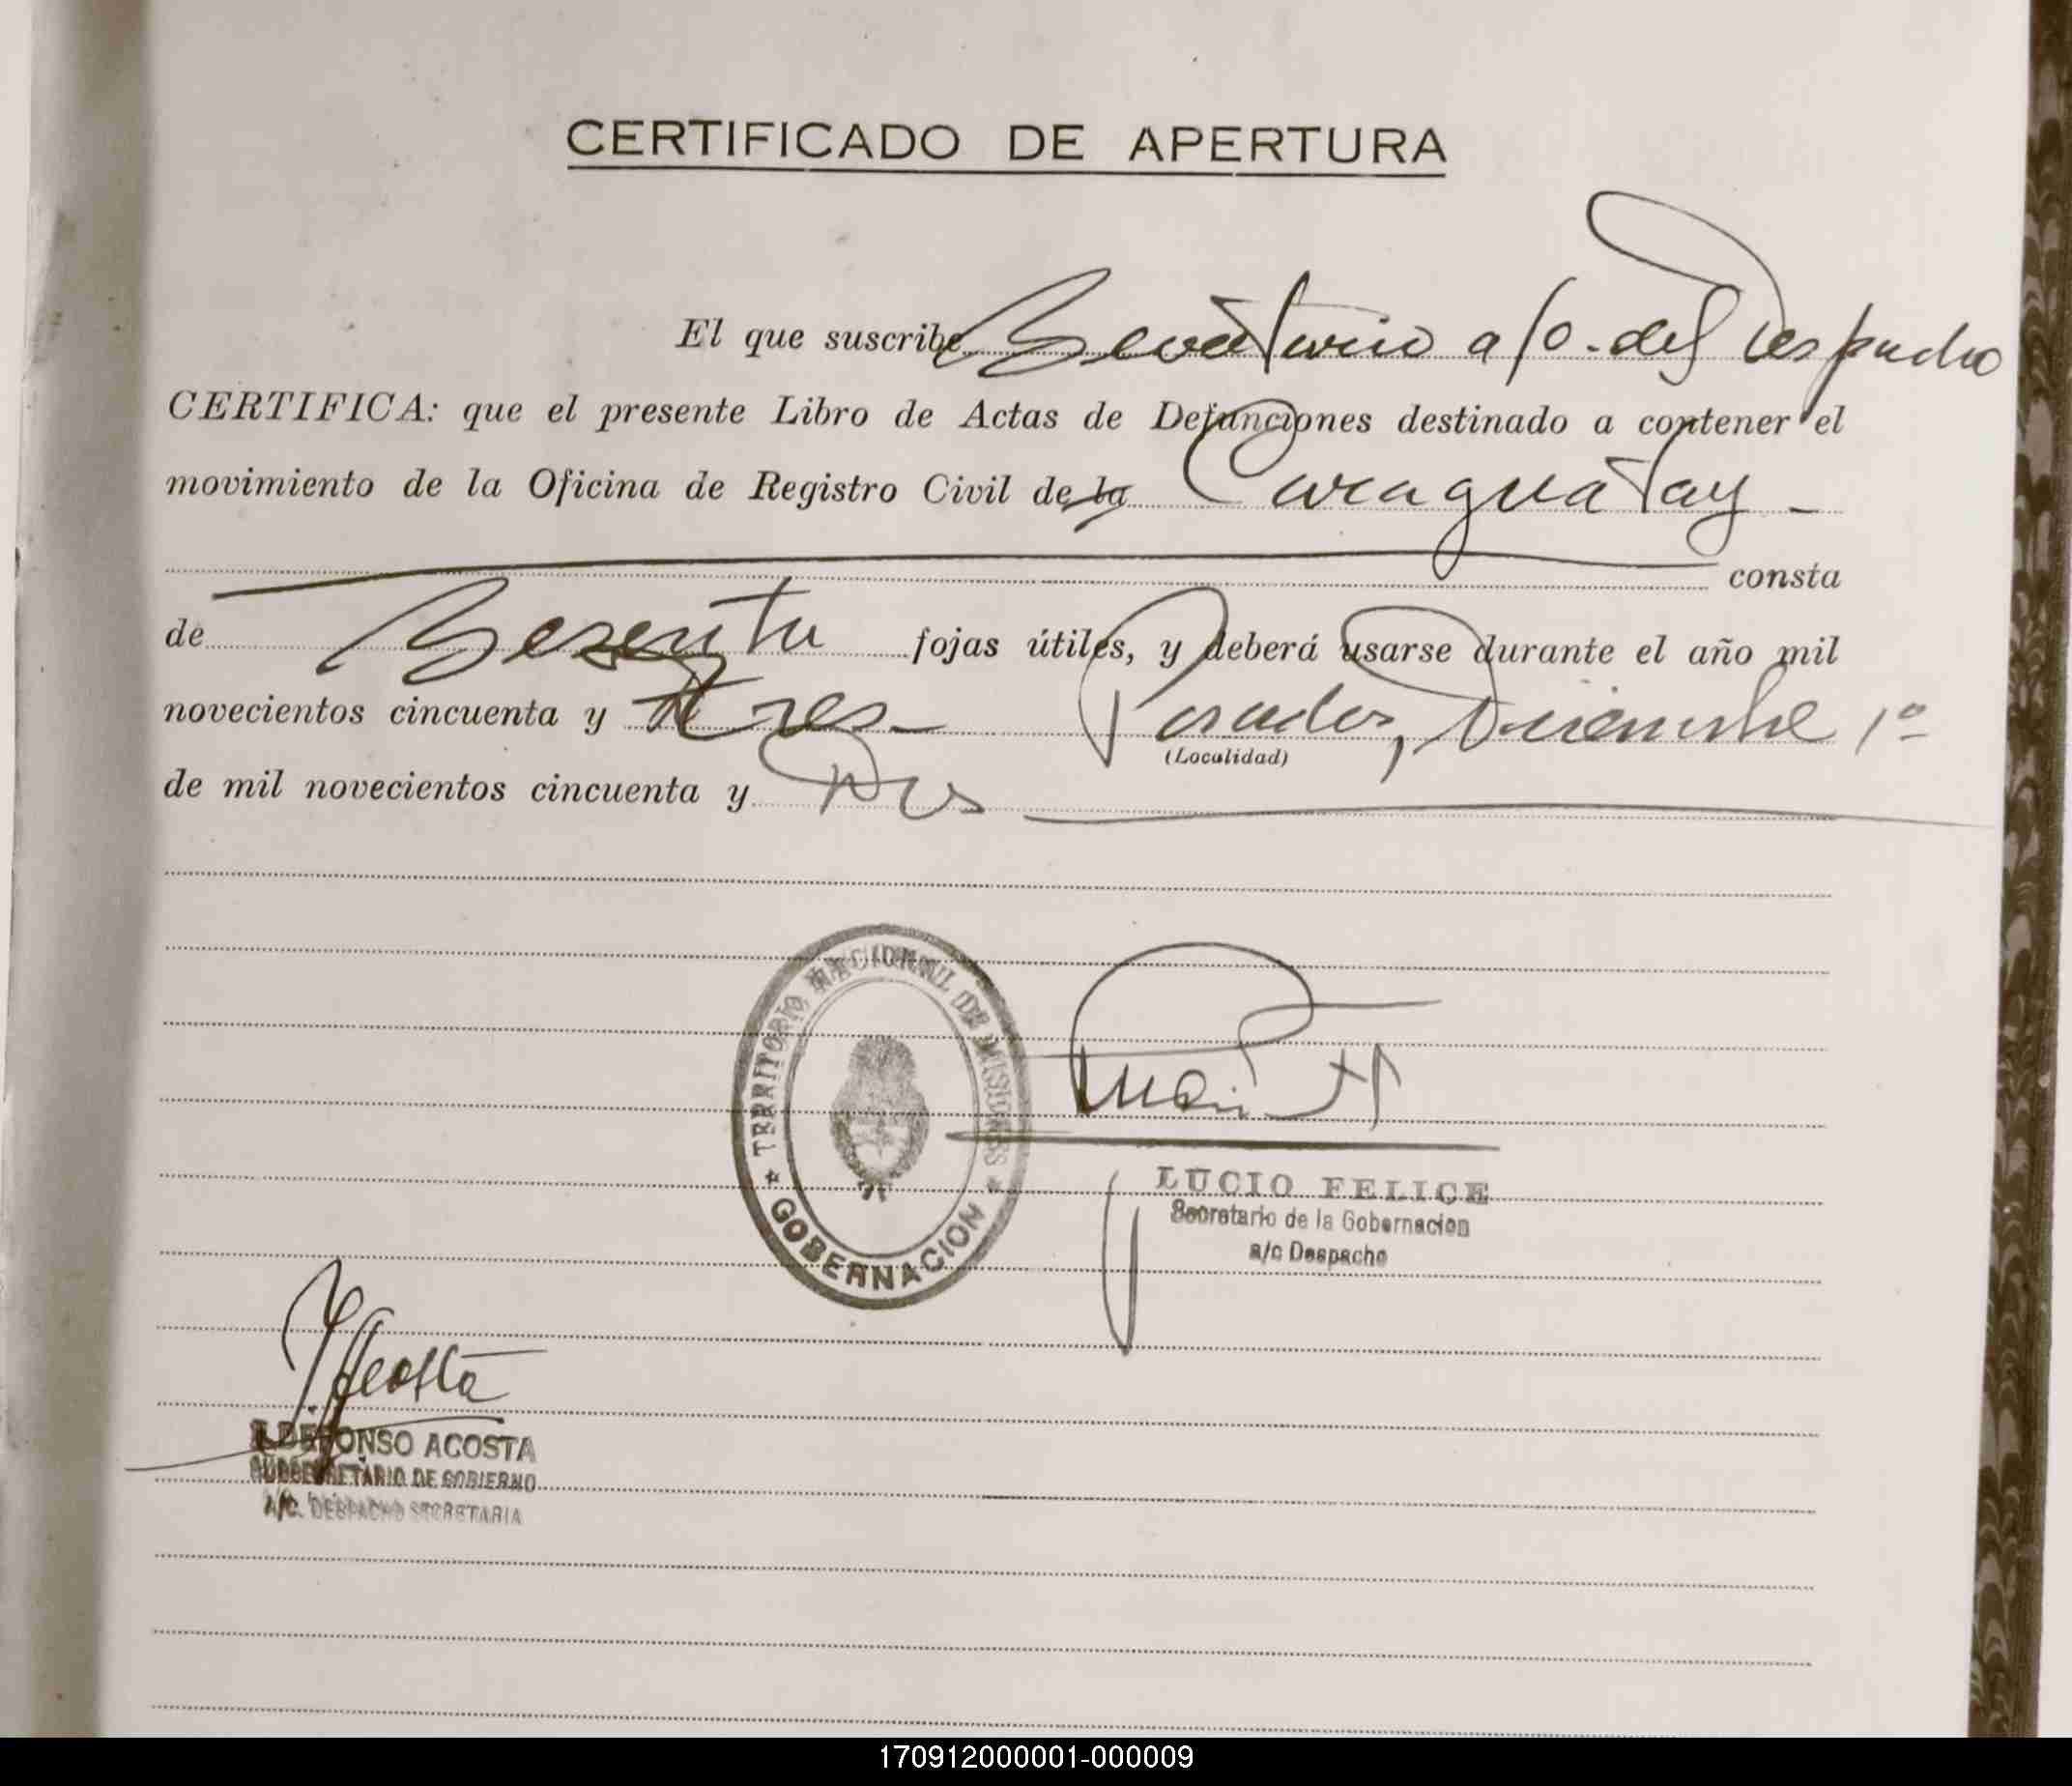 CERTIFICADO DE APERTURA
El que suscribe Secretario a/c. del Despacho
CERTIFICA: que el presente Libro de Actas de Defunciones destinado a contener el
movimiento de la Oficina de Registro Civil de la Caraguatay -
consta
de Sesenta fojas útiles, y deberá usarse durante el año mil
novecientos cincuenta y tres- Posadas, Diciembre 1º
(Localidad)
de mil novecientos cincuenta y Dos
TERRITORIO NACIONAL DE MISIONES
GOBERNACION
LUCIO FELICE
Secretario de la Gobernacion
a/c Despacho
IAcosta
ILDEFONSO ACOSTA
SUBSECRETARIO DE GOBIERNO
A/C. DESPACHO SECRETARIA
170912000001-000009